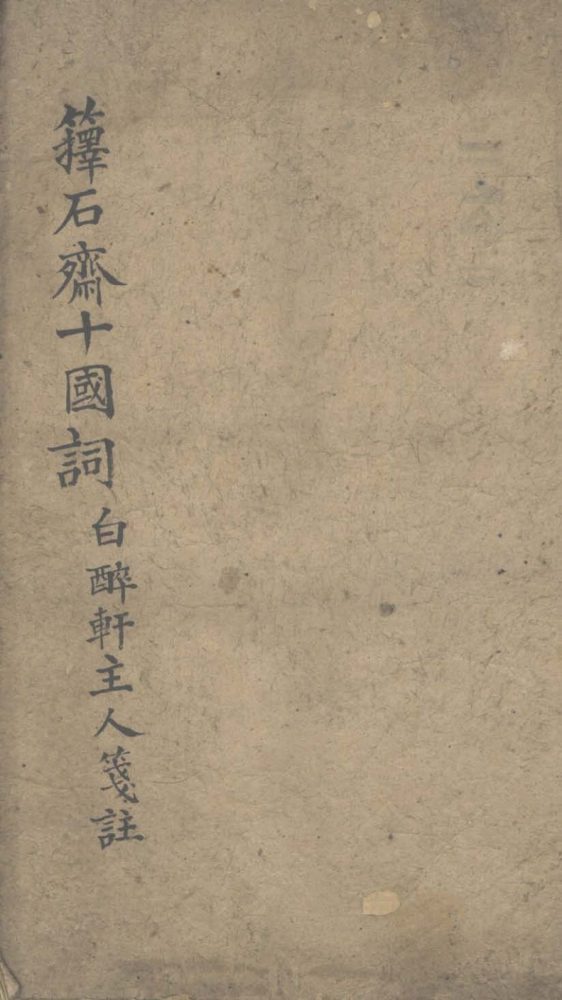 籜石齋十國詞
白醉軒主人箋註